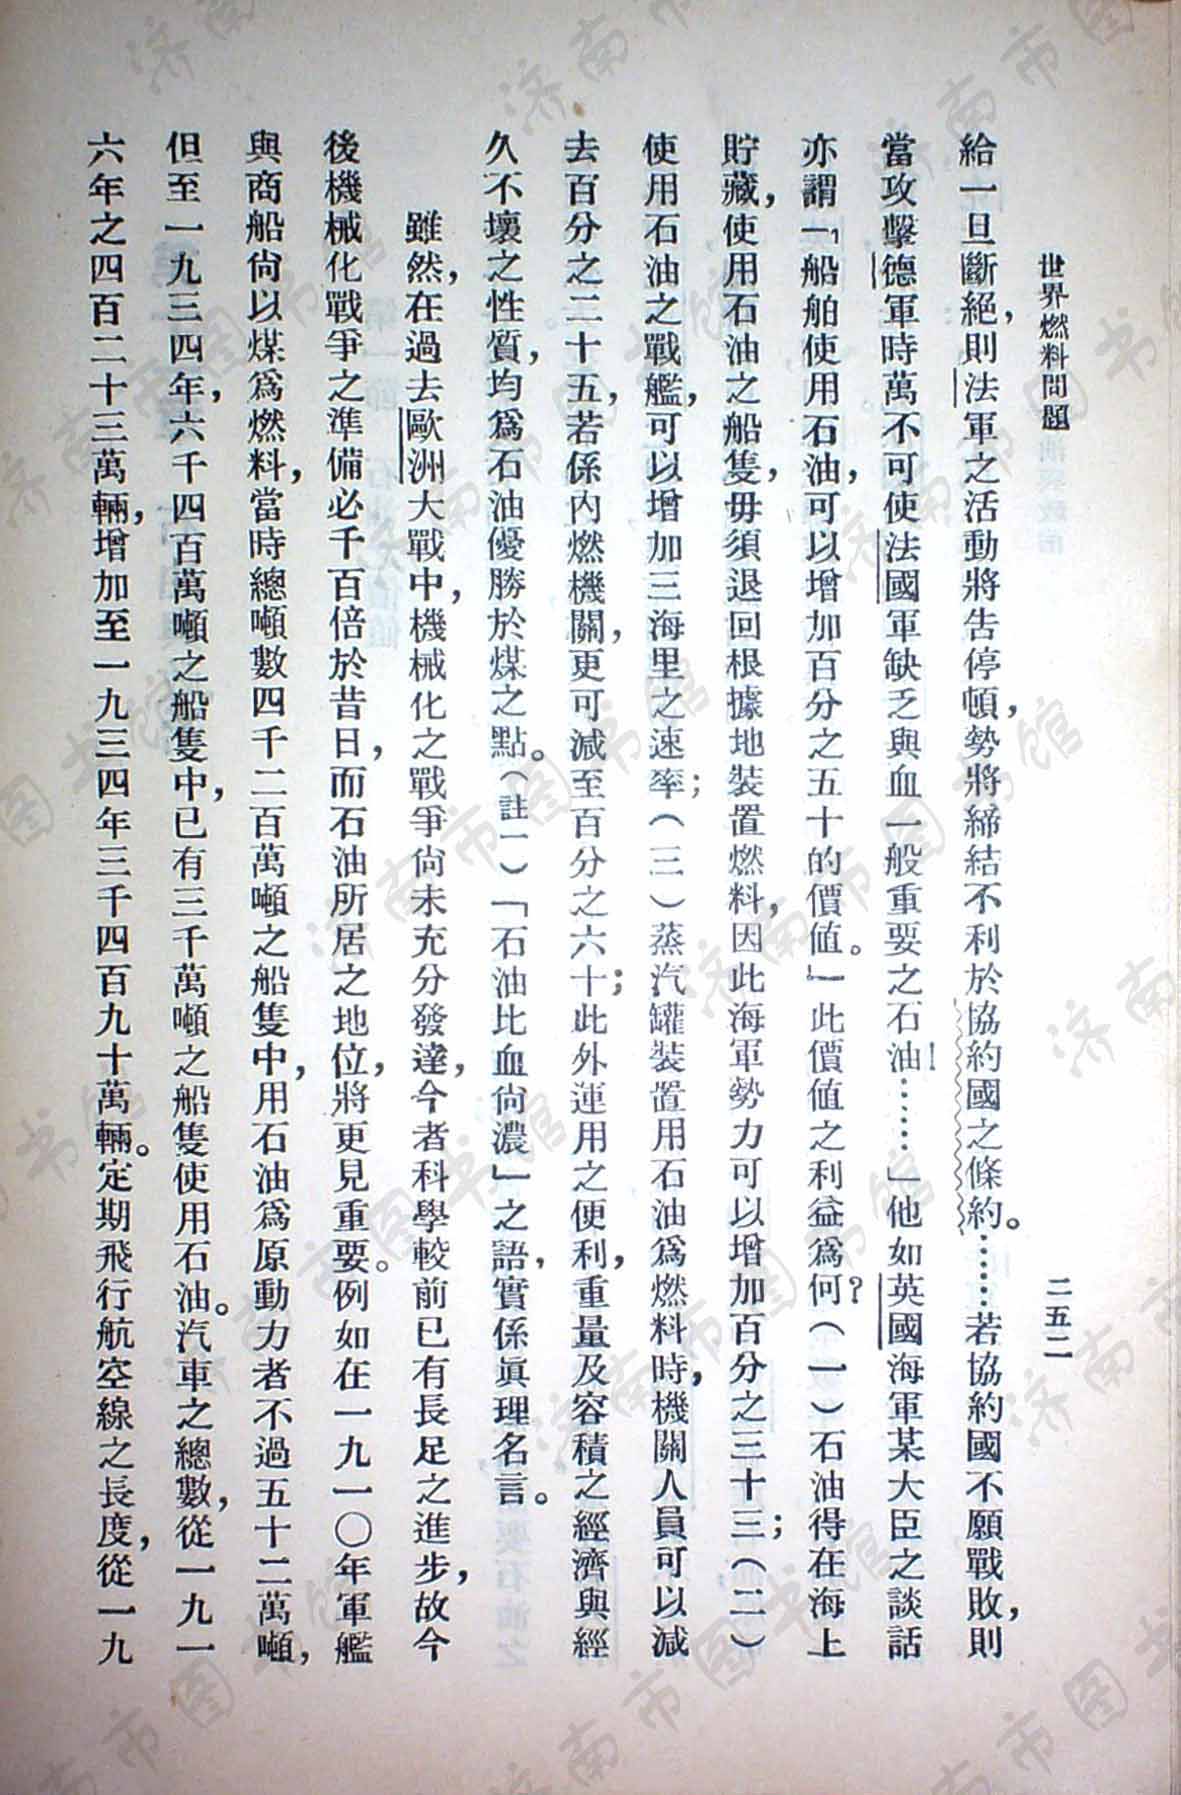 世界燃料問題
二五二
給一旦斷絕，則法軍之活動將告停頓，勢將締結不利於協約國之條約。……若協約國不願戰敗，則
當攻擊德軍時萬不可使法國軍缺乏與血一般重要之石油！……」他如英國海軍某大臣之談話
亦謂「船舶使用石油，可以增加百分之五十的價值。」此價值之利益爲何？（一）石油得在海上
貯藏，使用石油之船隻，毋須退回根據地裝置燃料，因此海軍勢力可以增加百分之三十三；（二）
使用石油之戰艦，可以增加三海里之速率；（三）蒸汽罐裝置用石油爲燃料時，機關人員可以減
去百分之二十五，若係內燃機關，更可減至百分之六十；此外運用之便利，重量及容積之經濟與經
久不壞之性質，均爲石油優勝於煤之點。（註一）「石油比血尙濃」之語，實係眞理名言。
雖然，在過去歐洲大戰中，機械化之戰爭尙未充分發達，今者科學較前已有長足之進步，故今
後機械化戰爭之準備必千百倍於昔日，而石油所居之地位，將更見重要。例如在一九一〇年軍艦
與商船尙以煤爲燃料，當時總噸數四千二百萬噸之船隻中，用石油爲原動力者不過五十二萬噸，
但至一九三四年，六千四百萬噸之船隻中，已有三千萬噸之船隻使用石油。汽車之總數，從一九一
六年之四百二十三萬輛，增加至一九三四年三千四百九十萬輛。定期飛行航空線之長度，從一九
济南市图书馆